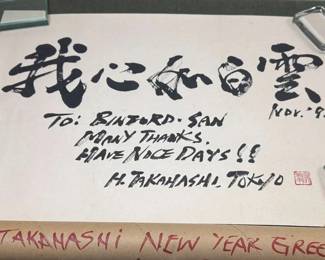 我心如白雲
Nov. '9
TO: BINFORD-SAN
MANY THANKS.
HAVE NICE DAYS!!
H. TAKAHASHI. TOKYO
TAKAHASHI NEW YEAR GREE